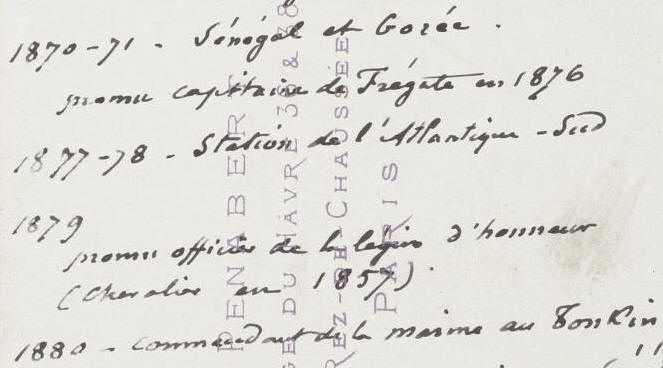 1870-71 - Sénégal et Gorée.
promu capitaine de Frégate en 1876
1877-78 - Station de l'Atlantique-Sud
1879
promu officier de la légion d'honneur
(Chevalier en 1857)
1880 - commandant de la marine au Tonkin
PENABERT
GE DU HAVRE 36 & 38
REZ-DE-CHAUSSÉE
PARIS